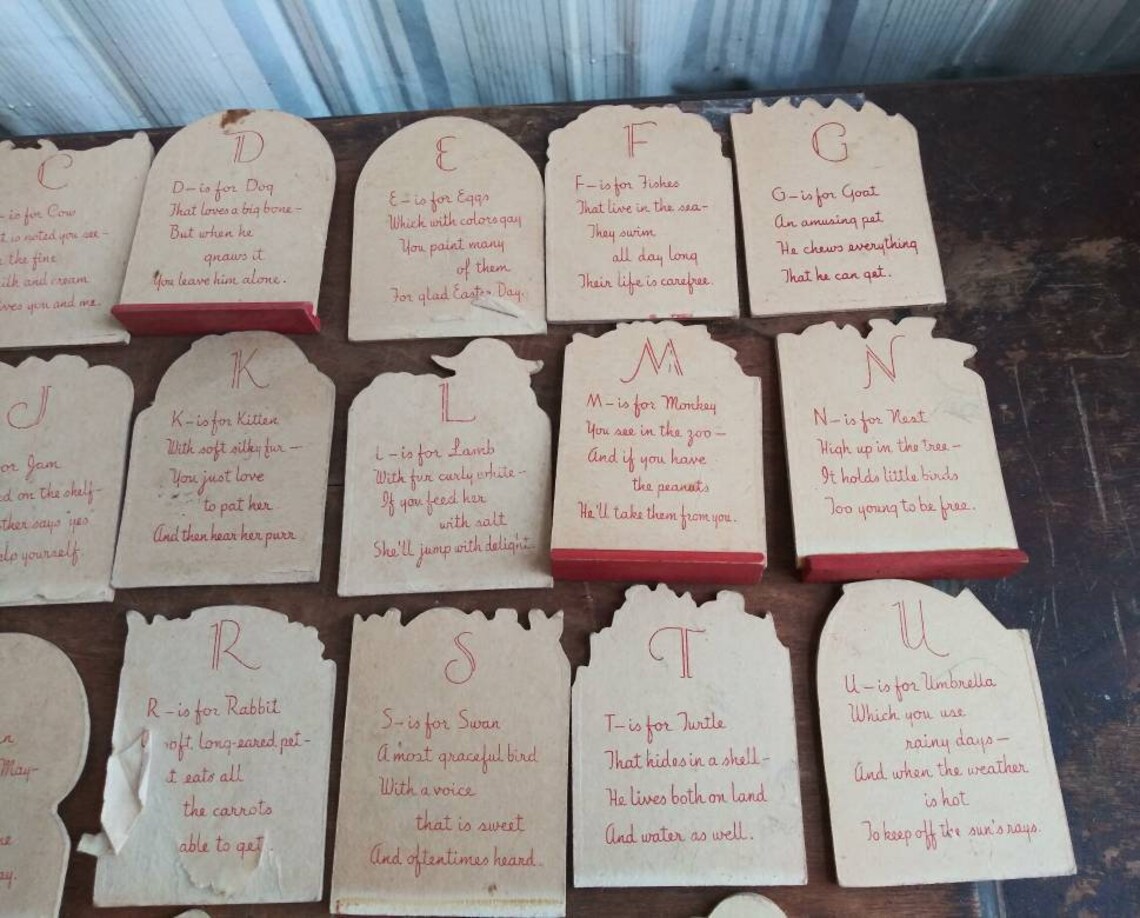 C
is for Cow
is noted you see-
the fine
milk and cream
gives you and me.
D
D-is for Dog
That loves a big bone-
But when he
gnaws it
You leave him alone.
E
E-is for Eggs
Which with colors gay
You paint many
of them
For glad Easter Day.
F
F-is for Fishes
That live in the sea-
They swim
all day long
Their life is carefree.
G
G-is for Goat
An amusing pet
He chews everything
That he can get.
J
or Jam
on the shelf-
says "yes
yourself.
K
K-is for Kitten
With soft silky fur-
You just love
to pat her
And then hear her purr
L
L-is for Lamb
With fur curly white-
If you feed her
with salt
She'll jump with delight.
M
M-is for Monkey
You see in the zoo-
And if you have
the peanuts
He'll take them from you.
N
N-is for Nest
High up in the tree-
It holds little birds
Too young to be free.
May-
R
R-is for Rabbit
soft, long-eared pet-
eats all
the carrots
able to get
S
S-is for Swan
A most graceful bird
With a voice
that is sweet
And oftentimes heard.
T
T-is for Turtle
That hides in a shell-
He lives both on land
And water as well.
U
U-is for Umbrella
Which you use
rainy days-
And when the weather
is hot
To keep off the sun's rays.